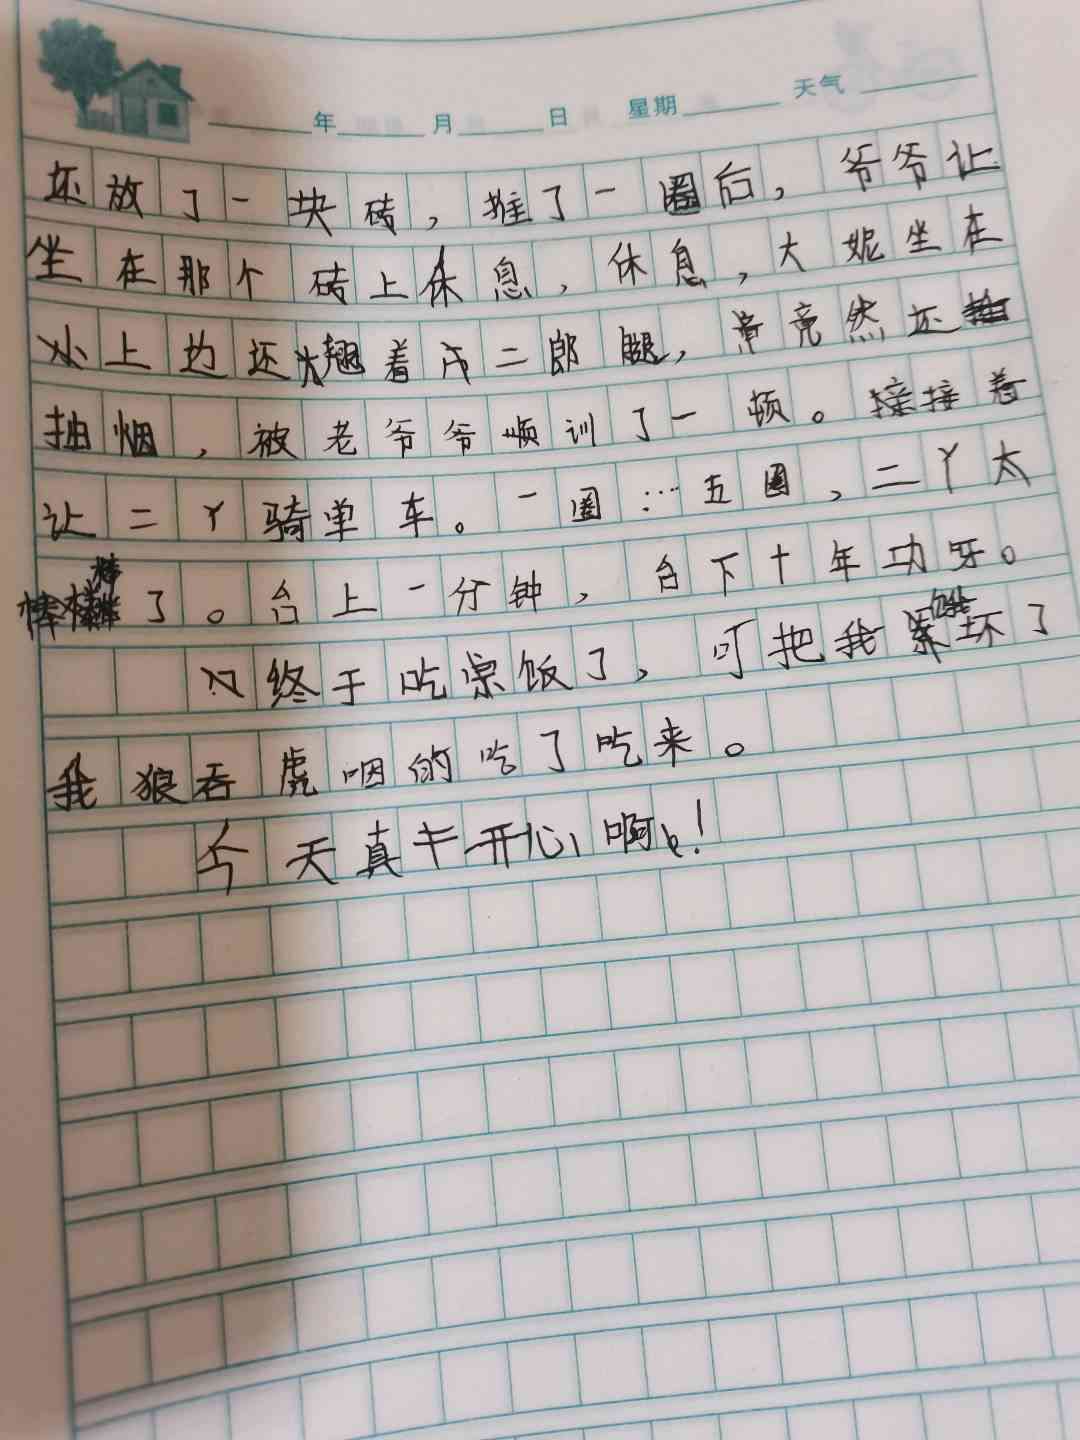 年 月 日 星期 天气
还放了一块砖，推了一圈后，爷爷让
坐在那个砖上休息，休息，大妮坐在
上边还翘着二郎腿，竟然还
抽烟，被老爷爷训了一顿。接着
让二丫骑单车。一圈…五圈，二丫太
棒了。台上一分钟，台下十年功牙。
终于吃饭了，可把我饿坏了
我狼吞虎咽的吃了吃来。
今天真开心啊！